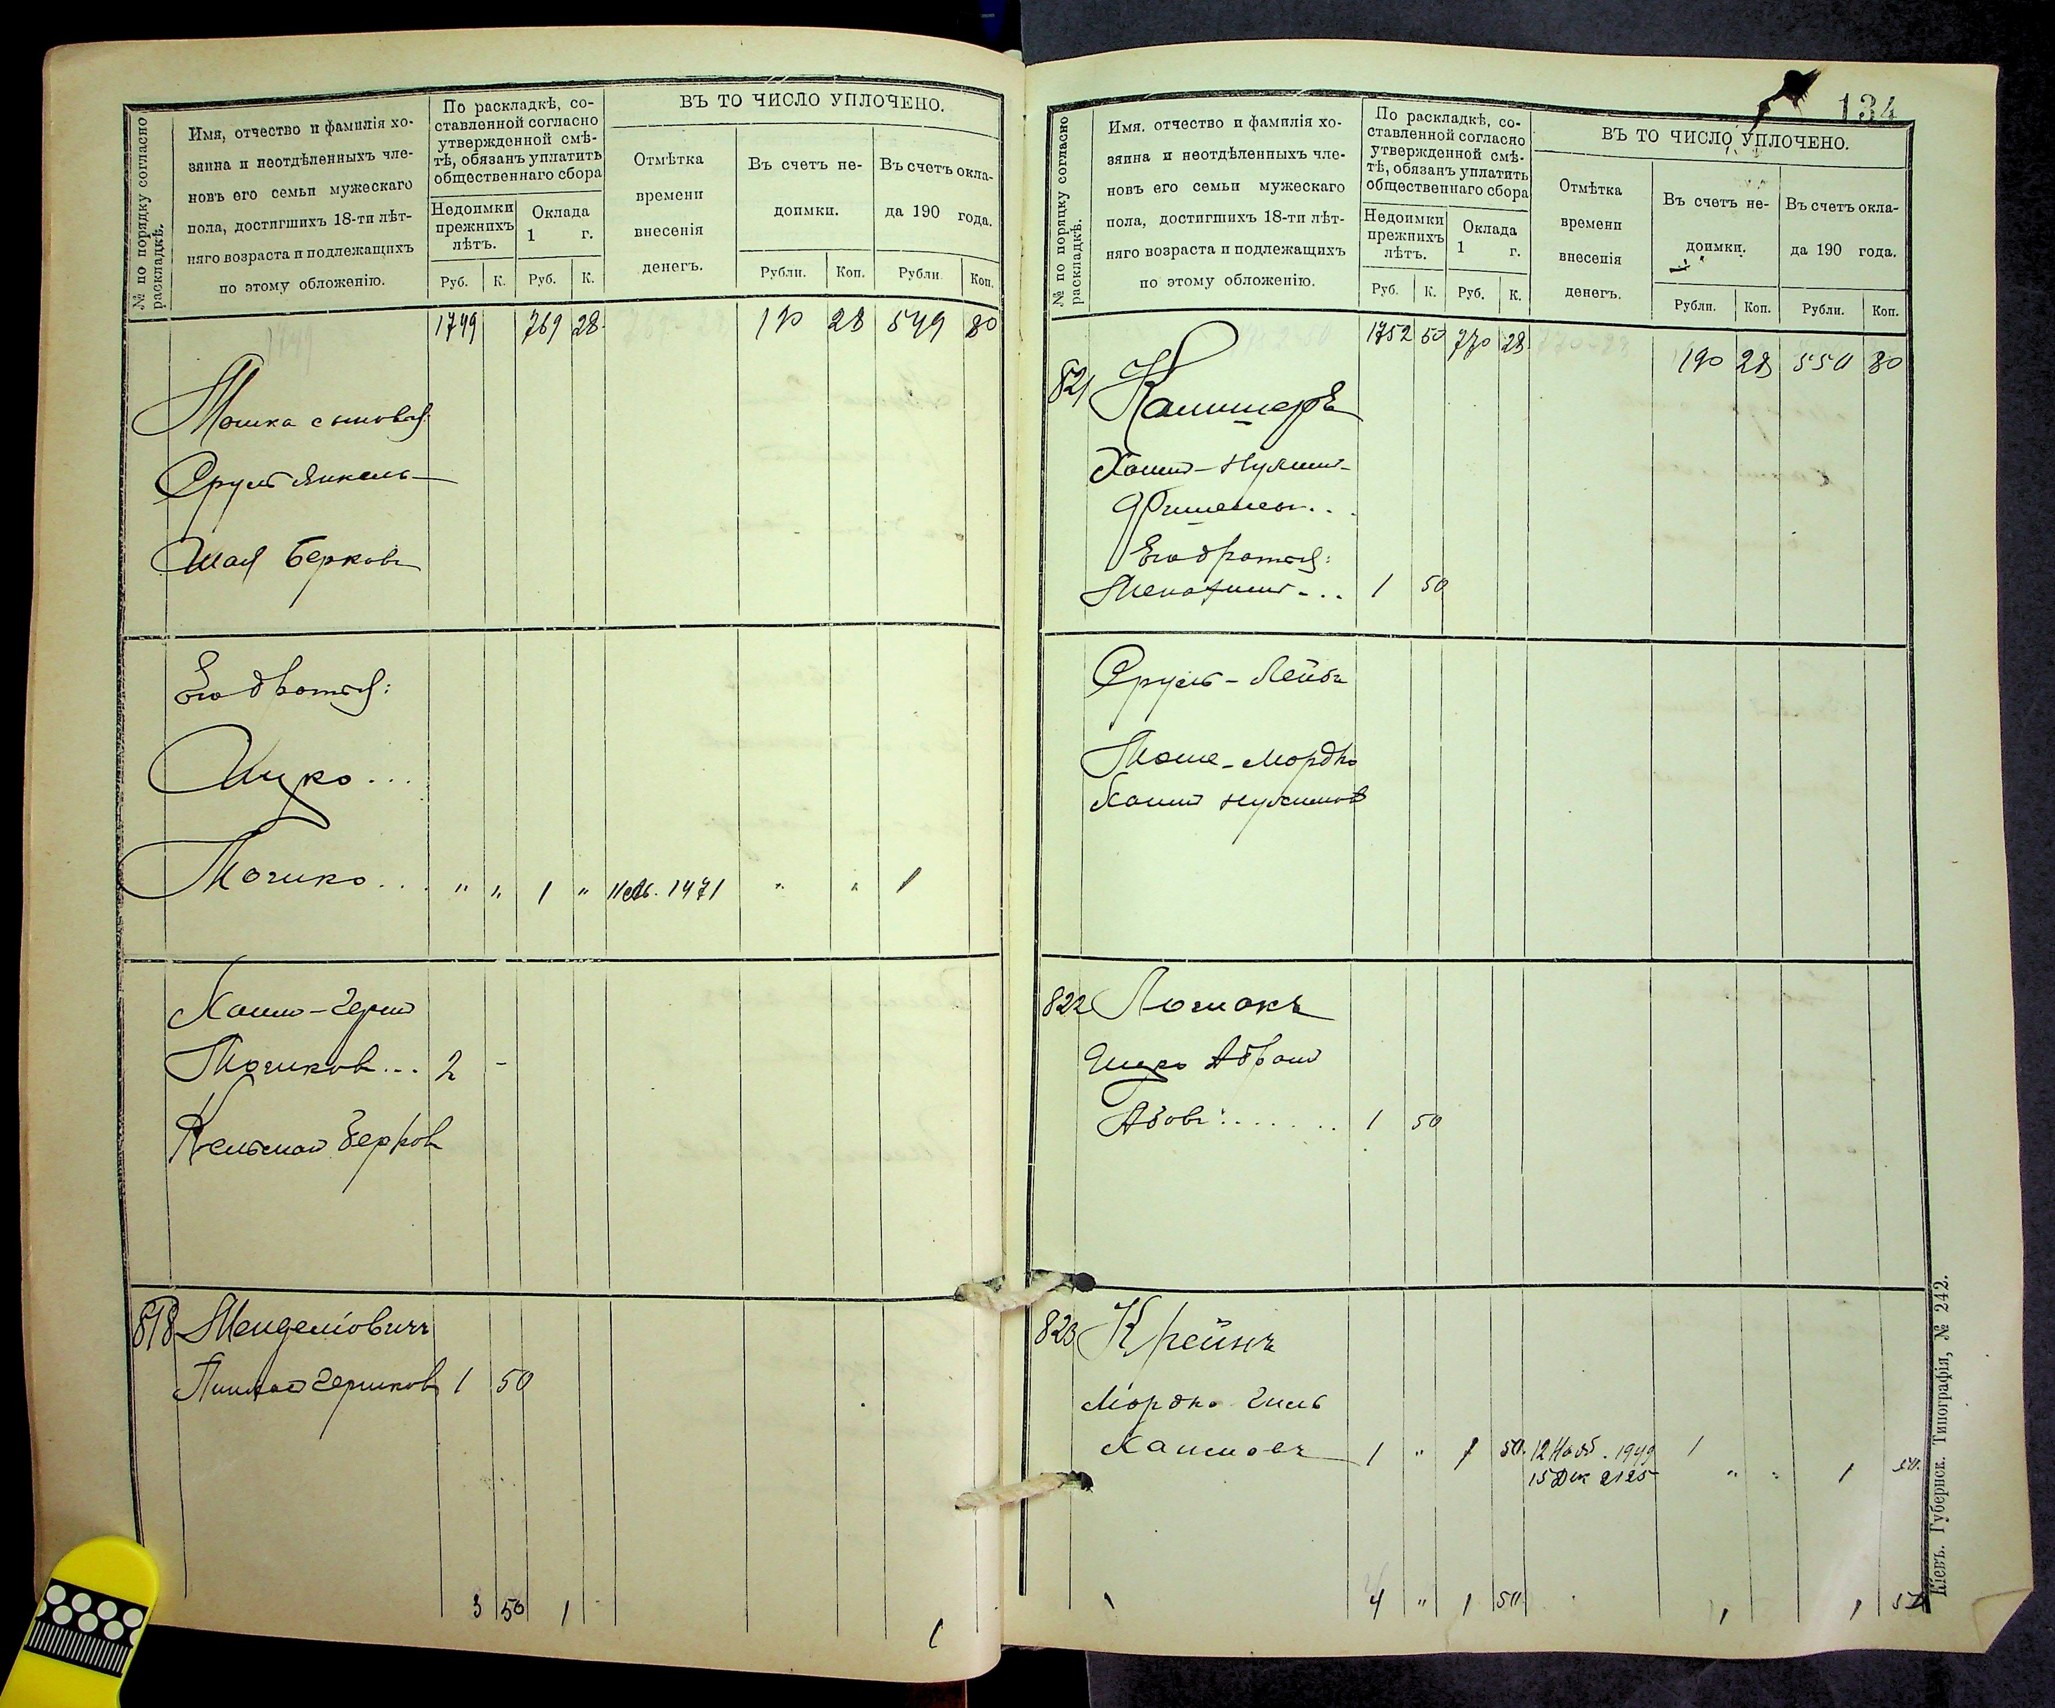 № по порядку согласно раскладкѣ.
Имя, отчество и фамилія хо-
зяина и неотдѣленныхъ чле-
новъ его семьи мужескаго
пола, достигшихъ 18-ти лѣт-
няго возраста и подлежащихъ
по этому обложенію.
По раскладкѣ, со-
ставленной согласно
утвержденной смѣ-
тѣ, обязанъ уплатить
общественнаго сбора
Недоимки
прежнихъ
лѣтъ.
Оклада
1 г.
Руб. К. Руб. К.
ВЪ ТО ЧИСЛО УПЛОЧЕНО.
Отмѣтка
времени
внесенія
денегъ.
Въ счетъ не-
доимки.
Въ счетъ окла-
да 190 года.
Рубли. Коп. Рубли Коп.
1749 769 28 190 28 549 80
Мошка сыновья:
Сруль Янкель
Шая Берковъ
Его братья:
Ицко ...
Мошко ... " " 1 " 1471 " " 1
Хаимъ-Герш
Мошков... 2 -
Кельман Берков
818 Менделіовичъ
Пинхас Гершков 1 50
3 50 1 1
134
№ по порядку согласно раскладкѣ.
Имя, отчество и фамилія хо-
зяина и неотдѣленныхъ чле-
новъ его семьи мужескаго
пола, достигшихъ 18-ти лѣт-
няго возраста и подлежащихъ
по этому обложенію.
По раскладкѣ, со-
ставленной согласно
утвержденной смѣ-
тѣ, обязанъ уплатить
общественнаго сбора
Недоимки
прежнихъ
лѣтъ.
Оклада
1 г.
Руб. К. Руб. К.
ВЪ ТО ЧИСЛО УПЛОЧЕНО.
Отмѣтка
времени
внесенія
денегъ.
Въ счетъ не-
доимки.
Въ счетъ окла-
да 190 года.
Рубли. Коп. Рубли. Коп.
1752 50 770 28 190 28 550 80
821 Калишеръ
Хаим-Нухим
Фишелев...
Его братья:
Менахим... 1 50
Сруль-Лейба
Моше-Мордко
Хаим Нухимов
822
Ицко Абрам
1 50
823 Крейнъ
Мордко Гиль
Хаимовъ 1 " 1 50. 12 Нояб. 1949 1
15 Дек 2125 " " 1 50.
4 " 1 50 1 1 50
Кіевъ. Губернск. Типографія, № 242.